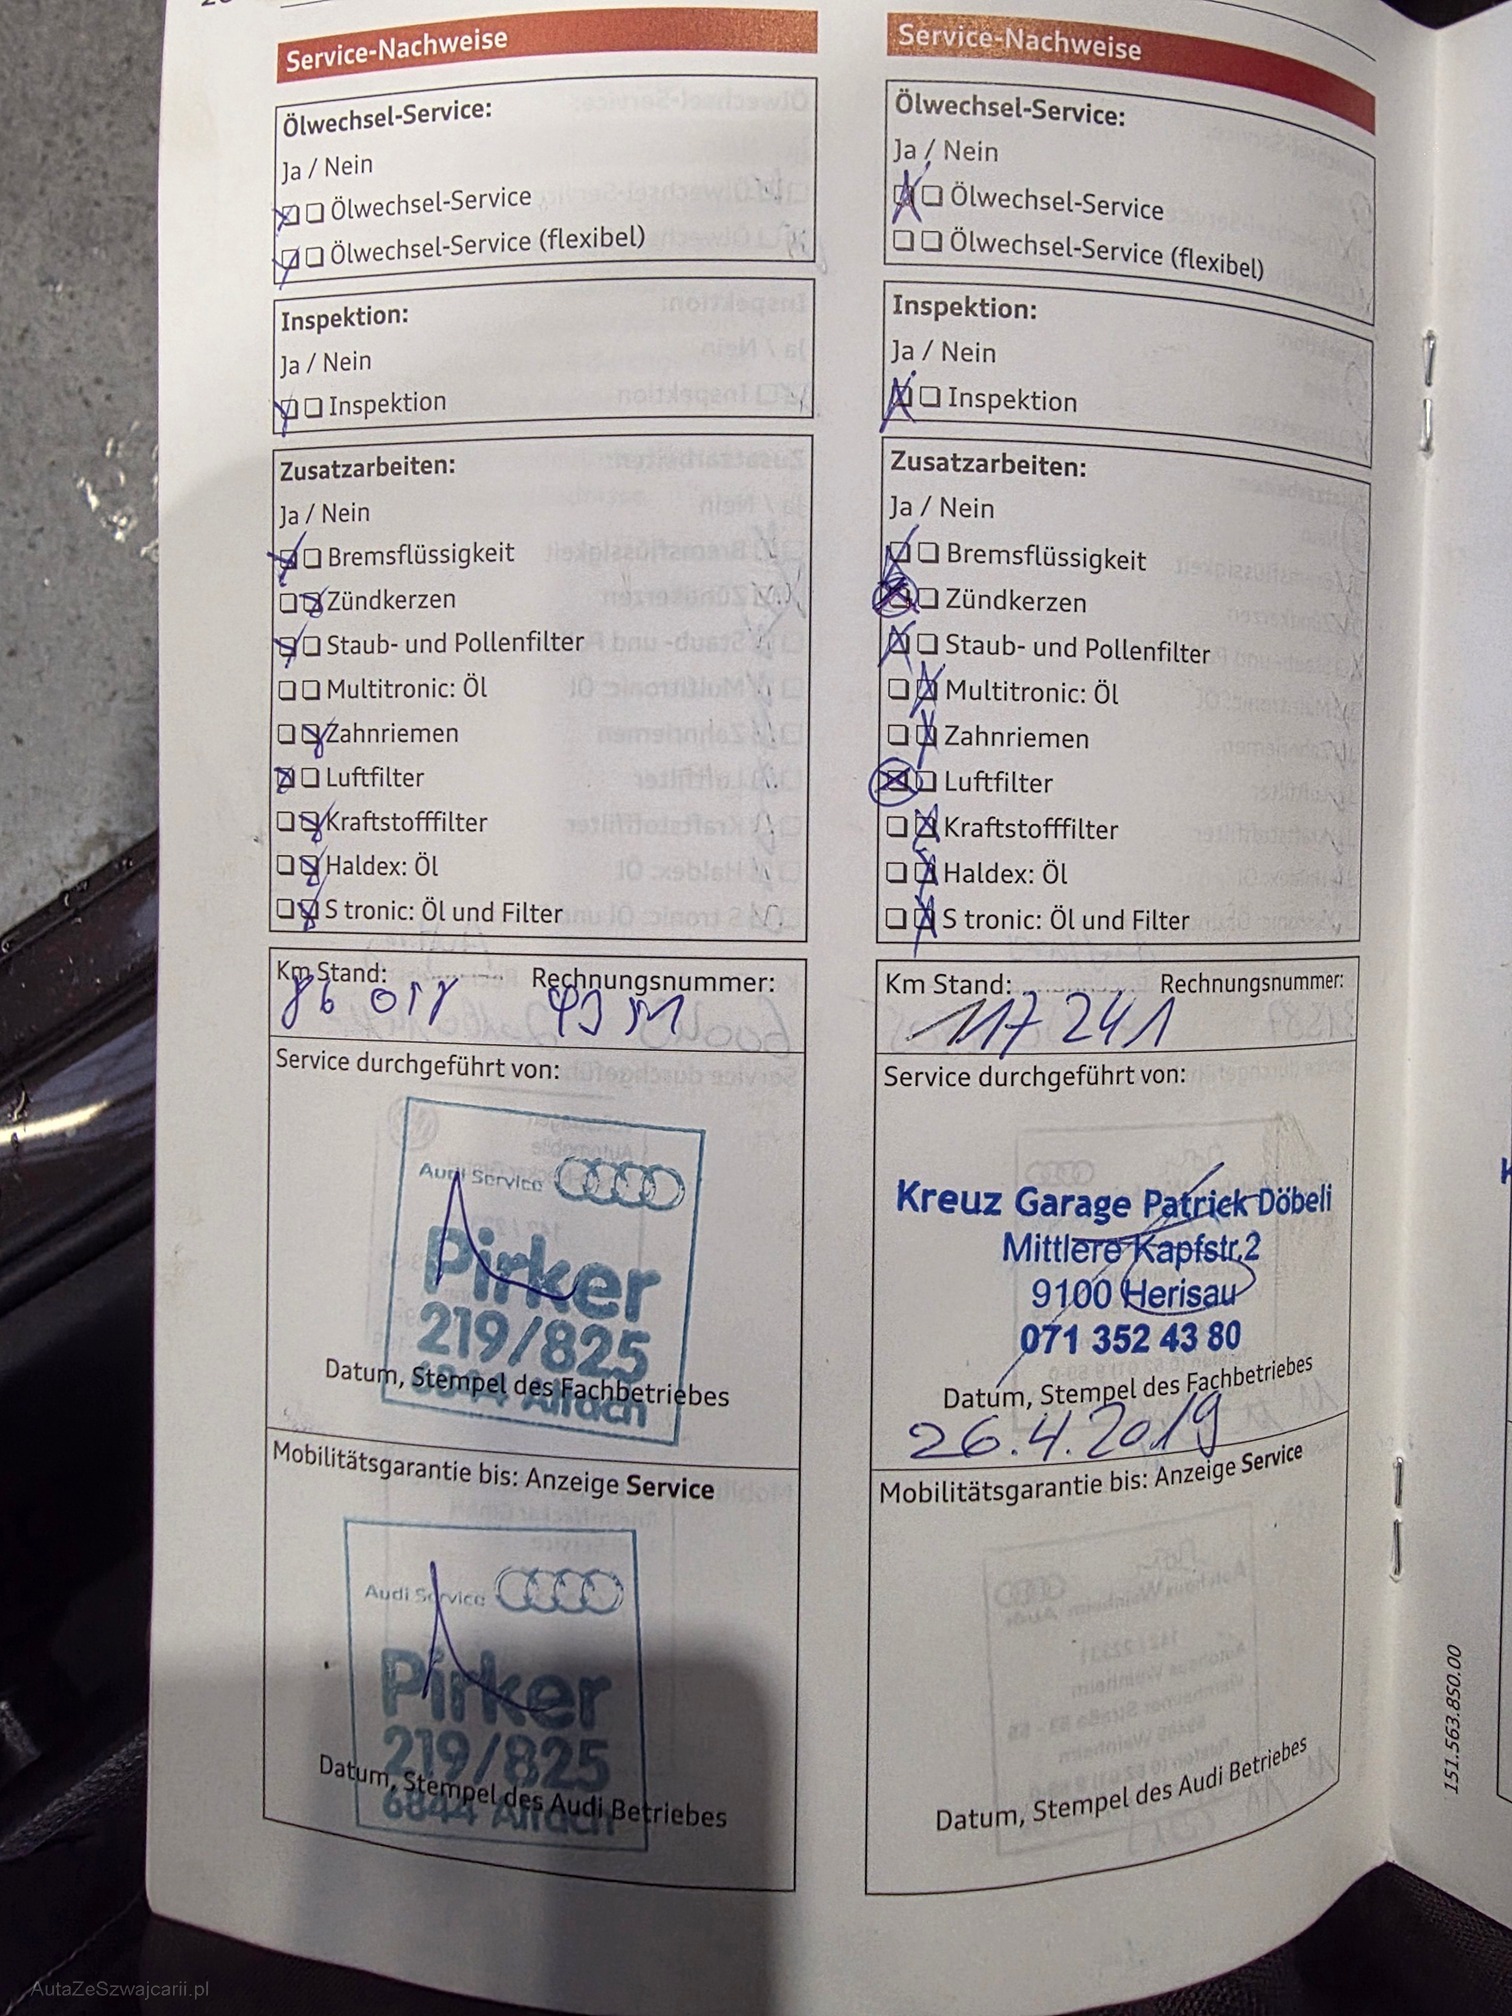 Service-Nachweise
Ölwechsel-Service:
Ja / Nein
Ölwechsel-Service
Ölwechsel-Service (flexibel)
Inspektion:
Ja / Nein
Inspektion
Zusatzarbeiten:
Ja / Nein
Bremsflüssigkeit
Zündkerzen
Staub- und Pollenfilter
Multitronic: Öl
Zahnriemen
Luftfilter
Kraftstofffilter
Haldex: Öl
S tronic: Öl und Filter
Km Stand: Rechnungsnummer:
Service durchgeführt von:
Audi Service
Pirker
219/825
6844 Altach
Datum, Stempel des Fachbetriebes
Mobilitätsgarantie bis: Anzeige Service
Audi Service
Pirker
219/825
6844 Altach
Datum, Stempel des Audi Betriebes
Service-Nachweise
Ölwechsel-Service:
Ja / Nein
Ölwechsel-Service
Ölwechsel-Service (flexibel)
Inspektion:
Ja / Nein
Inspektion
Zusatzarbeiten:
Ja / Nein
Bremsflüssigkeit
Zündkerzen
Staub- und Pollenfilter
Multitronic: Öl
Zahnriemen
Luftfilter
Kraftstofffilter
Haldex: Öl
S tronic: Öl und Filter
Km Stand: Rechnungsnummer:
117241
Service durchgeführt von:
Kreuz Garage Patrick Döbeli
Mittlere Kapfstr.2
9100 Herisau
071 352 43 80
Datum, Stempel des Fachbetriebes
26.4.2019
Mobilitätsgarantie bis: Anzeige Service
Datum, Stempel des Audi Betriebes
151.563.850.00
AutaZeSzwajcarii.pl